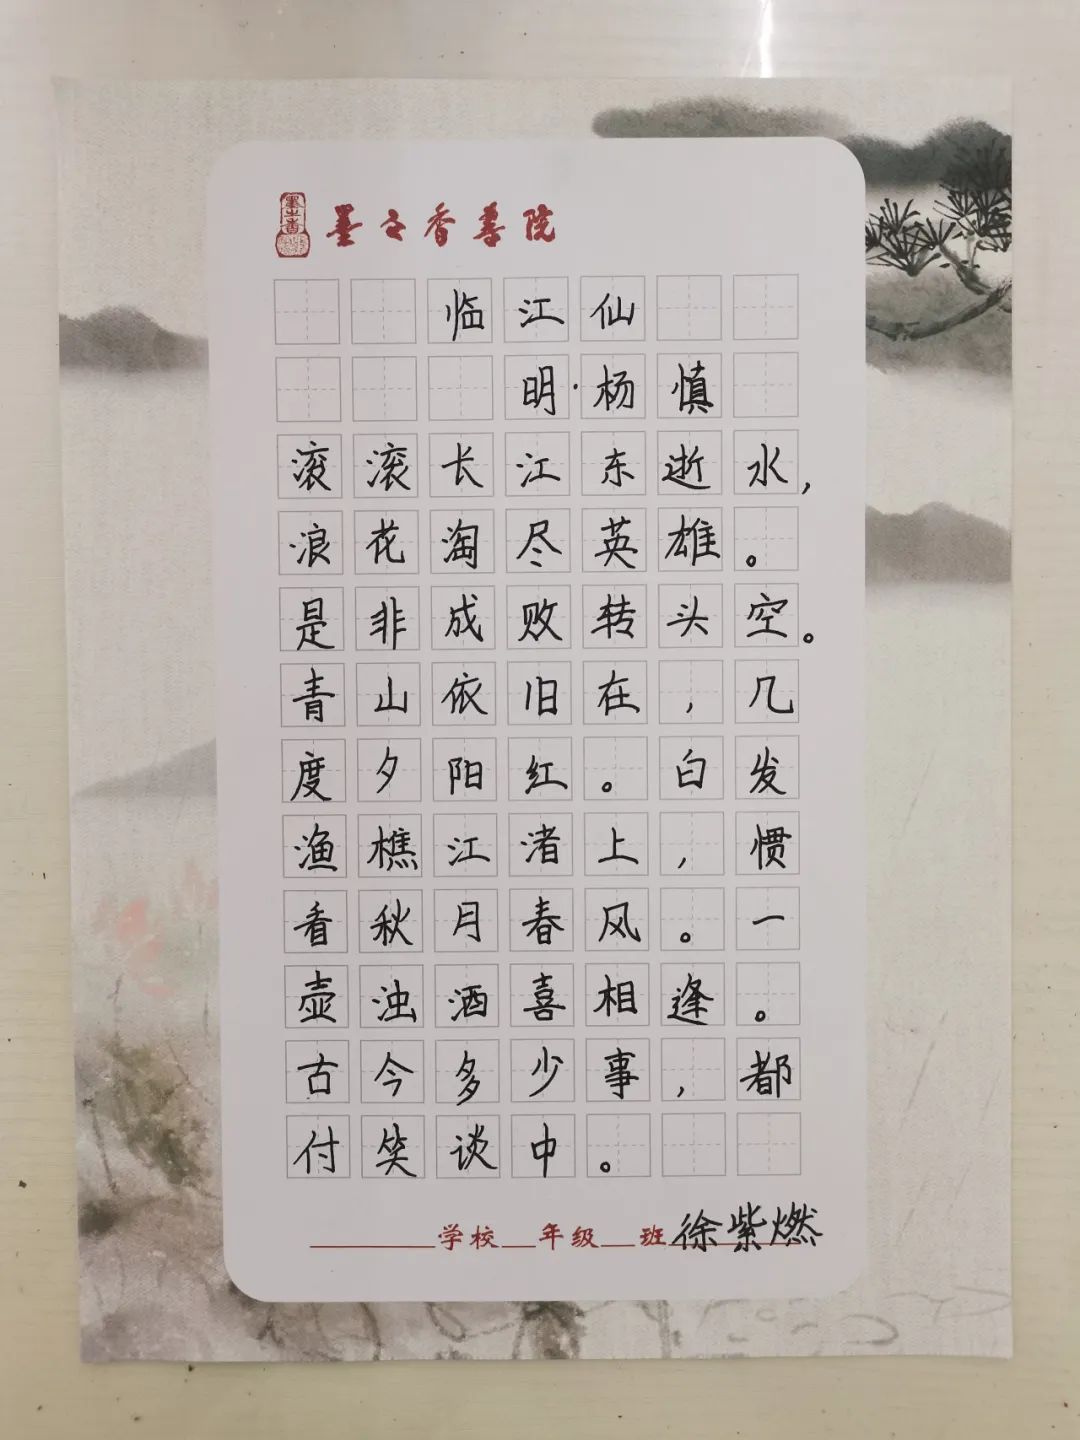 墨之香
墨之香书院
临江仙
明·杨慎
滚滚长江东逝水,
浪花淘尽英雄。
是非成败转头空。
青山依旧在,几
度夕阳红。白发
渔樵江渚上,惯
看秋月春风。一
壶浊酒喜相逢。
古今多少事,都
付笑谈中。
学校__年级__班徐紫燃